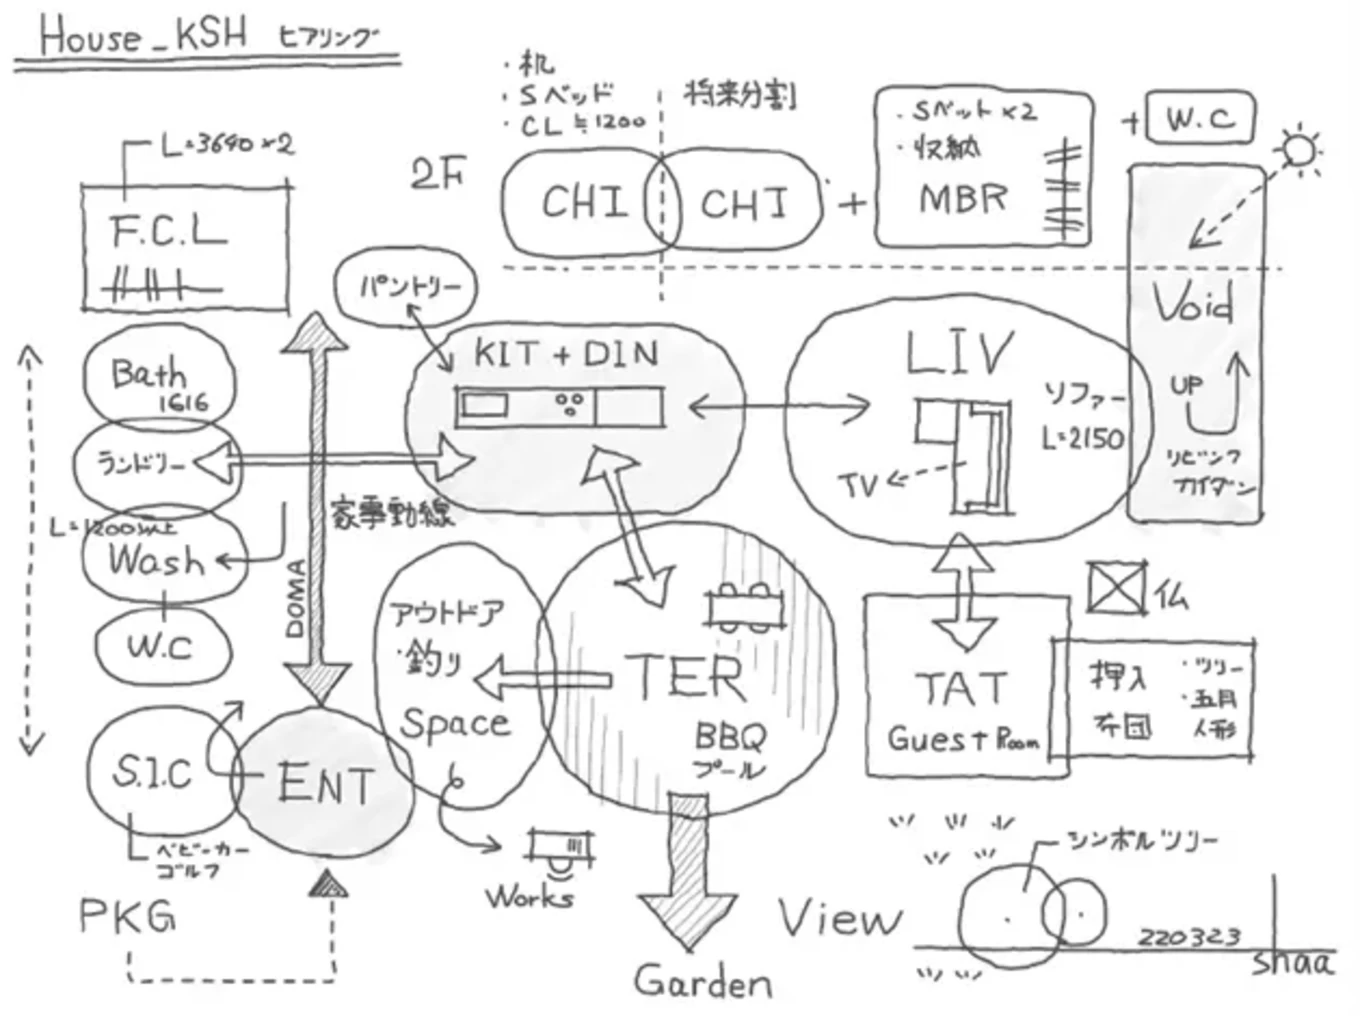 House_KSH ヒアリング
・机
・Sベッド
・CL≒1200
将来分割
2F
CHI
CHI
+
・Sベット×2
・収納
MBR
+
W.C
L=3640×2
F.C.L
パントリー
KIT + DIN
LIV
ソファー
L=2150
TV
Void
UP
リビング
カイダン
Bath
1616
ランドリー
L=1200以上
Wash
W.C
家事動線
DOMA
アウトドア
・釣り
Space
TER
BBQ
プール
TAT
Guest Room
仏
押入
布団
・ツリー
・五月
人形
S.I.C
ENT
ベビーカー
ゴルフ
PKG
Works
Garden
View
シンボルツリー
220323
shaa